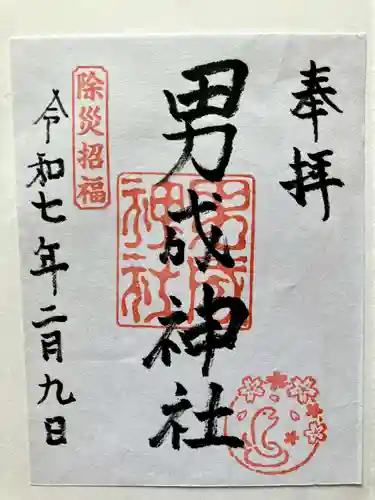 奉拝
男成神社
男成
神社
除災招福
令和七年二月九日